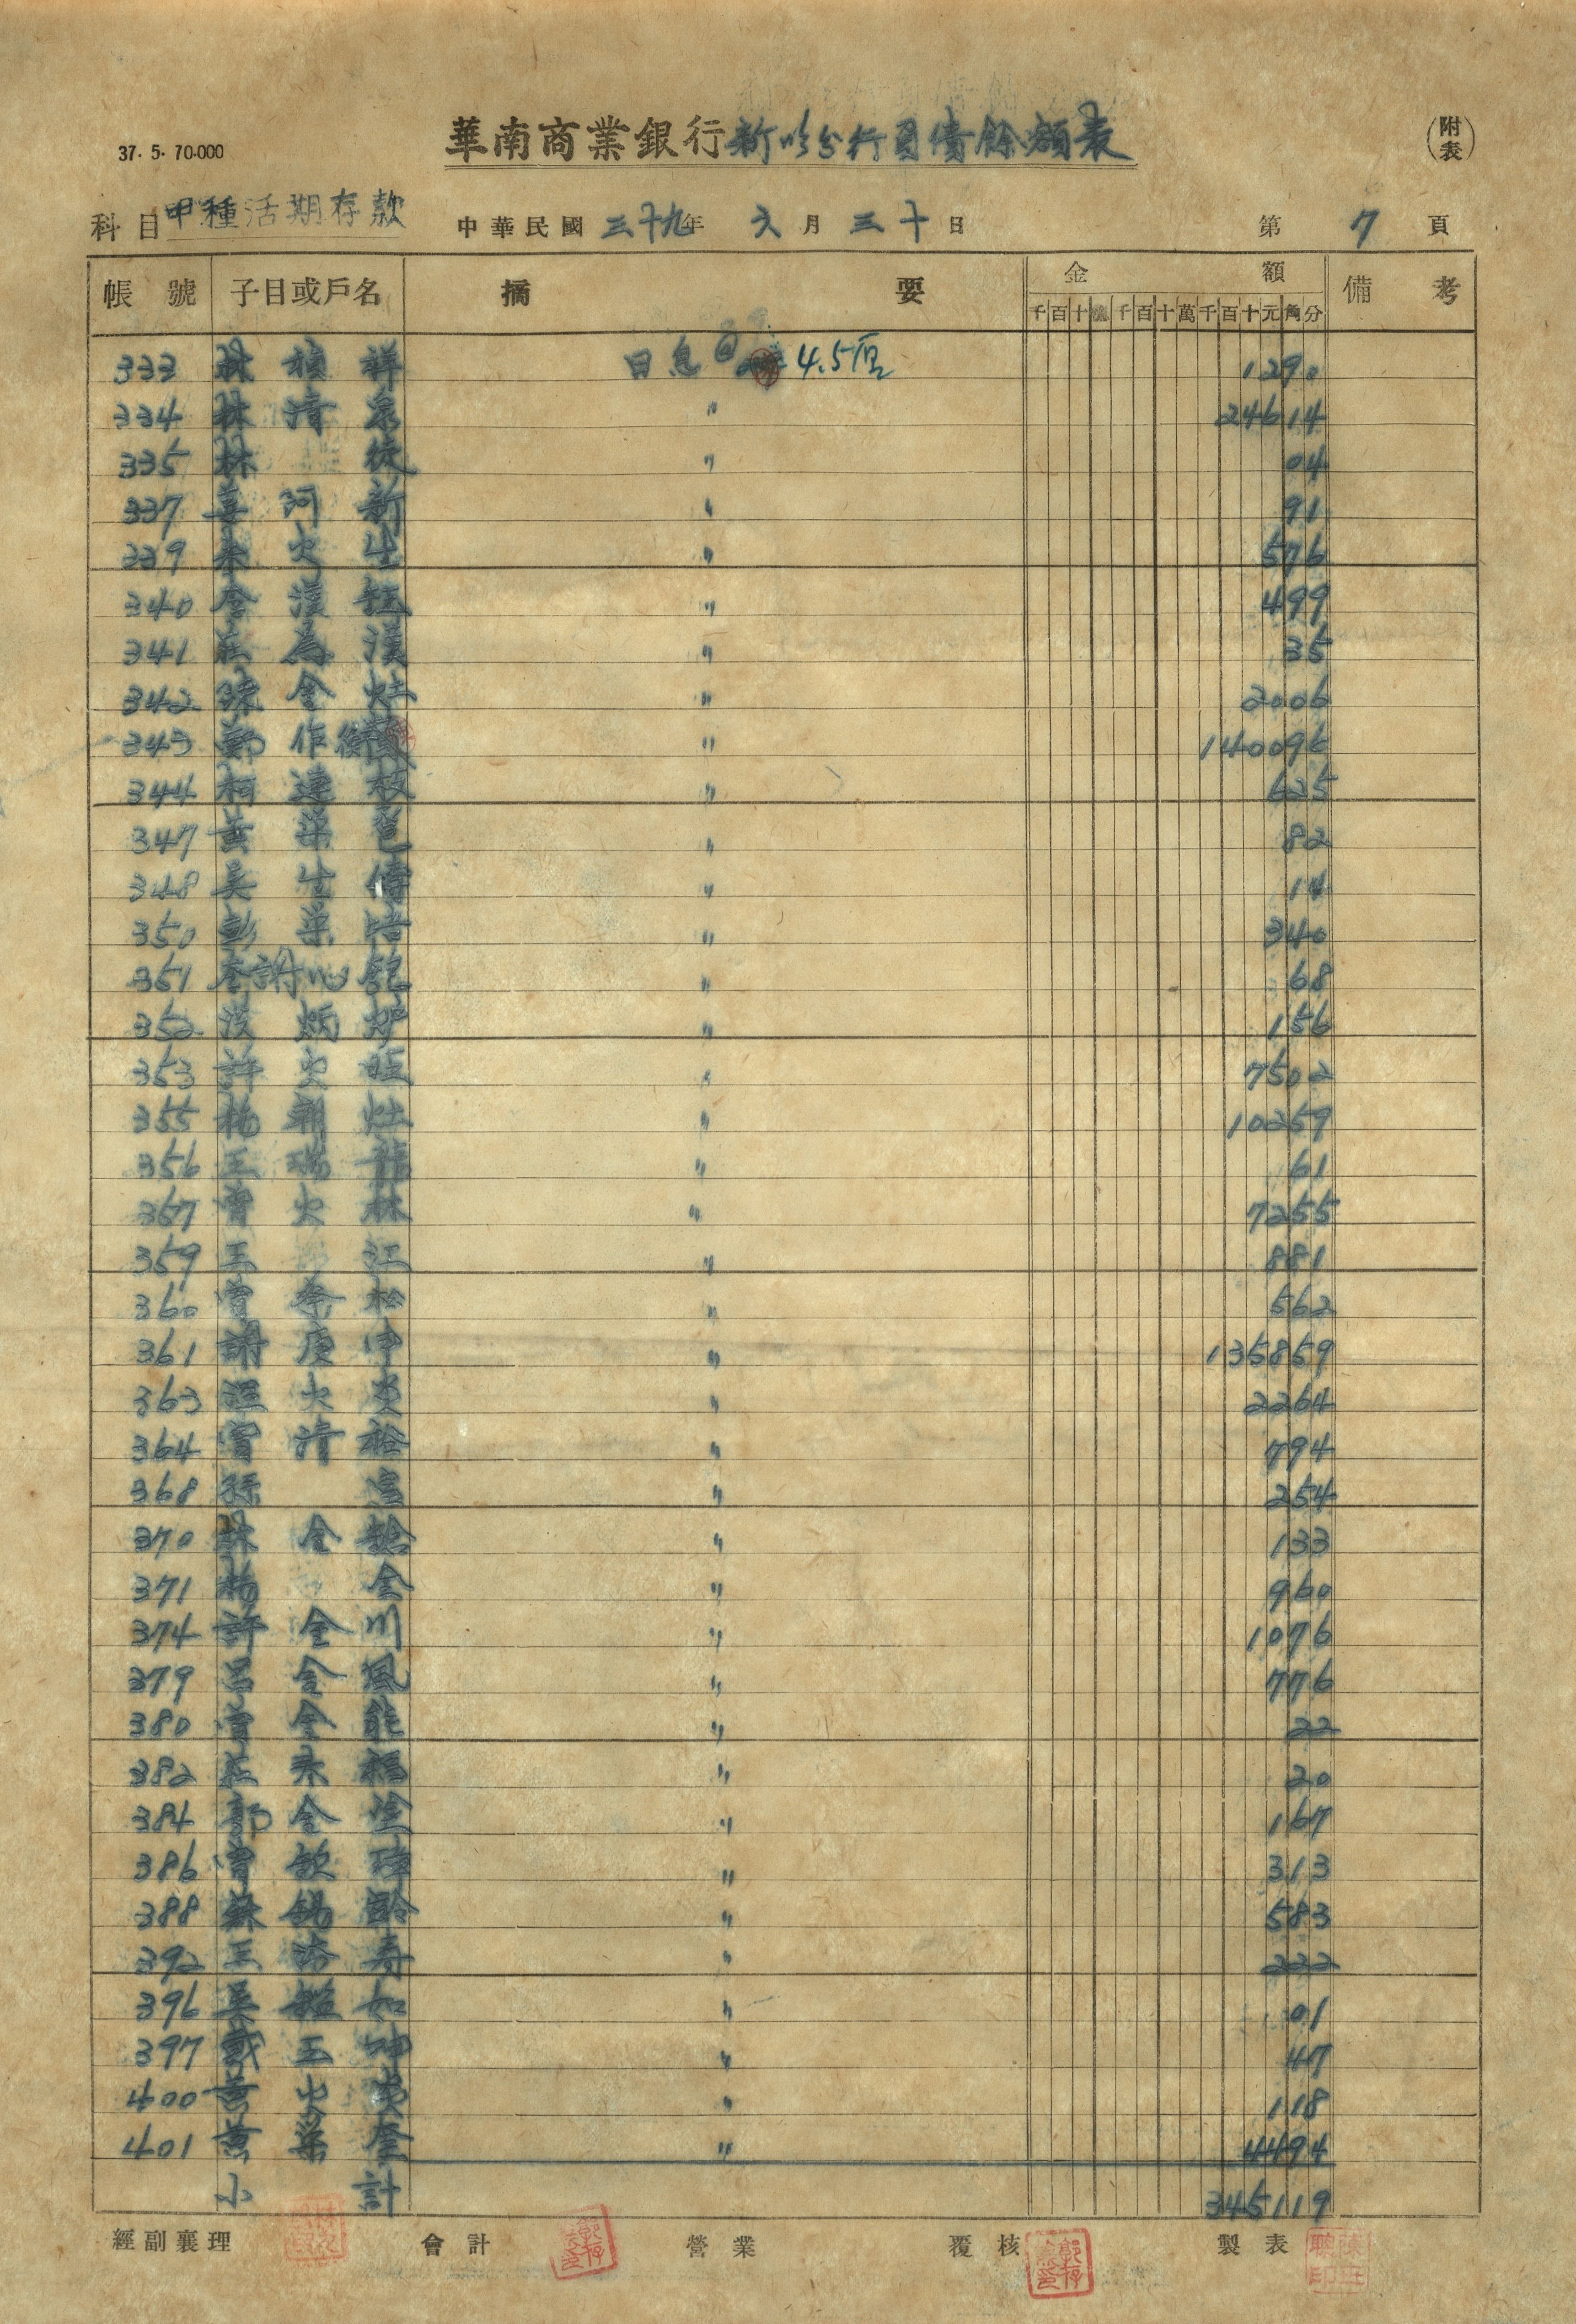 37. 5. 70.000
華南商業銀行新竹分行負債餘額表
(附表)
科目 甲種活期存款 中華民國 三十九年 六月 三十日 第 7 頁
帳號 子目或戶名 摘要 金額 備考
千百十億千百十萬千百十元角分
333 林禎祥 日息@ 4.5厘 1290
334 林清泉 〃 24614
335 林 〃 04
337 河新 〃 91
339 火生 〃 576
340 〃 499
341 莊為漢 〃 35
342 陳金灶 〃 2006
343 鄭作衡 〃 140096
344 柯達枝 〃 625
347 黃 〃 82
348 吳生傳 〃 14
350 彭 〃 340
351 謝 〃 68
352 炳炉 〃 156
353 許火旺 〃 7502
355 楊朝灶 〃 10259
356 王瑞龍 〃 61
357 曾火林 〃 7255
359 王江 〃 881
360 曾松 〃 562
361 謝庚申 〃 135859
363 溫火炎 〃 2264
364 曾清裕 〃 794
368 孫 〃 254
370 金 〃 133
371 楊金 〃 960
374 許金川 〃 1076
379 呂金風 〃 776
380 曾金能 〃 22
382 莊來福 〃 20
384 郭金 〃 167
386 曾欽 〃 313
388 蘇錫齡 〃 583
392 王寿 〃 222
396 吳如 〃 01
397 戴玉坤 〃 47
400 黃火炎 〃 118
401 黃奎 〃 4494
小計 345119
經副襄理 會計 營業 覆核 製表